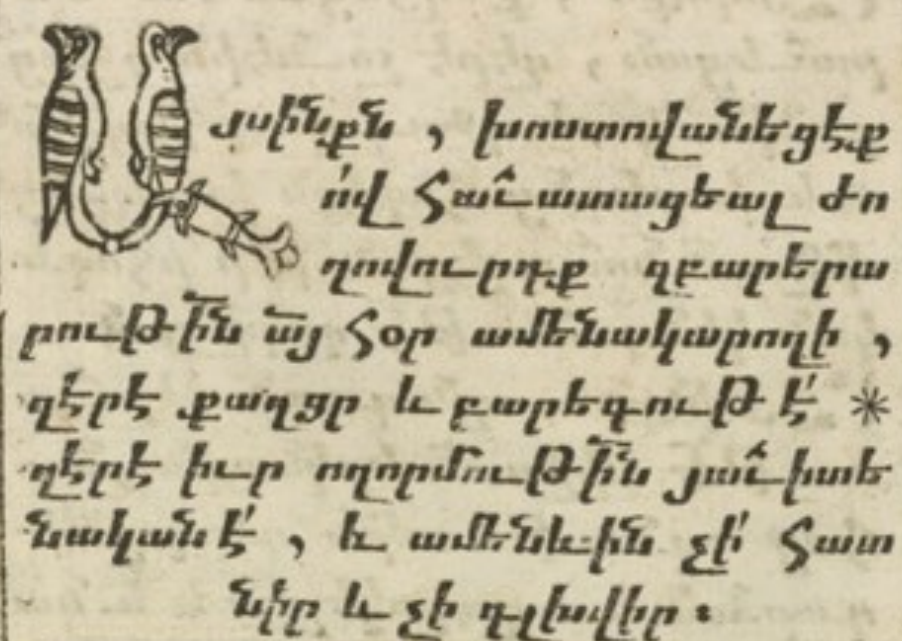 Այսինքն, խոստովանեցէք
ո՛վ հաւատացեալ ժո
ղովուրդք զբարերա
րութի՜ն ա՜յ հօր ամենակարողի,
զէրէ քաղցր և բարեգութ է՛ *
զէրէ իւր ողորմութի՜ն յաւիտե
նական է՛, և ամենևին չի՛ հատ
նիր և չի գլխվիր։